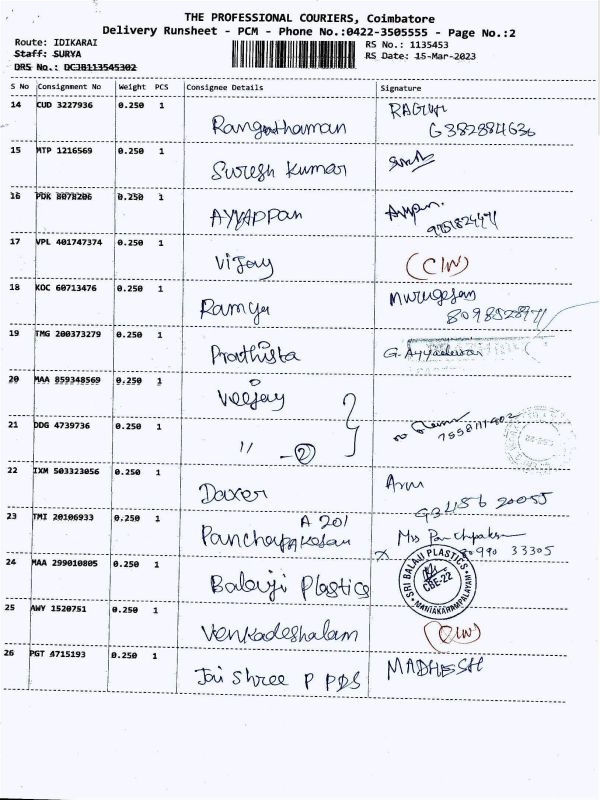 THE PROFESSIONAL COURIERS, Coimbatore
Delivery Runsheet - PCM - Phone No.:0422-3505555 - Page No.:2
Route: IDIKARAI
RS No.: 1135453
Staff: SURYA
RS Date: 15-Mar-2023
DRS No.: DCJB113545302
S No Consignment No Weight PCS Consignee Details Signature
14 CUD 3227936 0.250 1 Ranganthaman
15 MTP 1216569 0.250 1 Suresh Kumar
16 PDK 8078206 0.250 1 AYYAPPan
17 VPL 401747374 0.250 1 Vijay (CIW)
18 KOC 60713476 0.250 1 Ramya Murugesan
19 TMG 200373279 0.250 1 Prathista G. Ayyadurai
20 MAA 859348569 0.250 1 Veejay
21 DDG 4739736 0.250 1 11 - 2
22 IXM 503323056 0.250 1 Daxer Arun
23 TMI 20106933 0.250 1 A 201
X 33305
24 MAA 299010805 0.250 1 Balaji Plastics SRI BALAJI PLASTICS CBE-22 MANIAKARAMPALAYAM
25 AWY 1520751 0.250 1 Venkadeshalam (CIW)
26 PGT 4715193 0.250 1 Jai Shree P PDS MADHESH